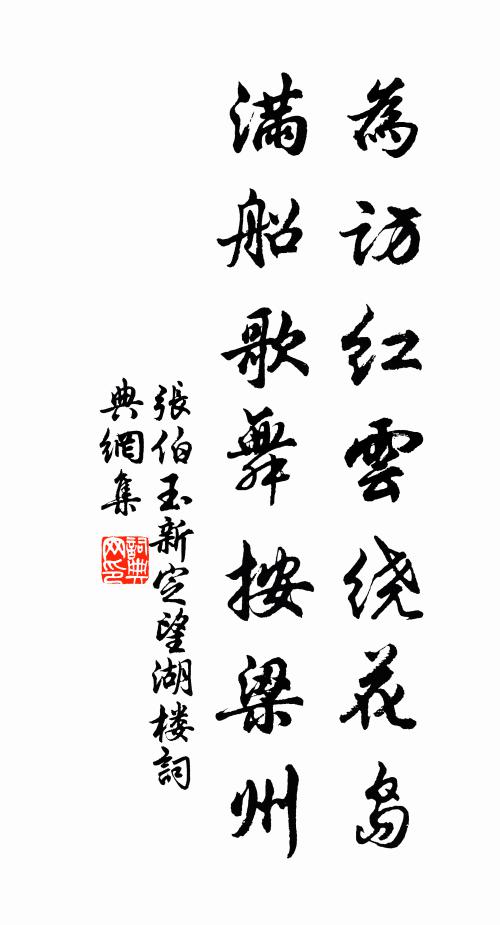 為訪紅雲绕花岛
滿船歌舞按梁州
張伯玉新定望湖楼詞
典網集
詞典网印